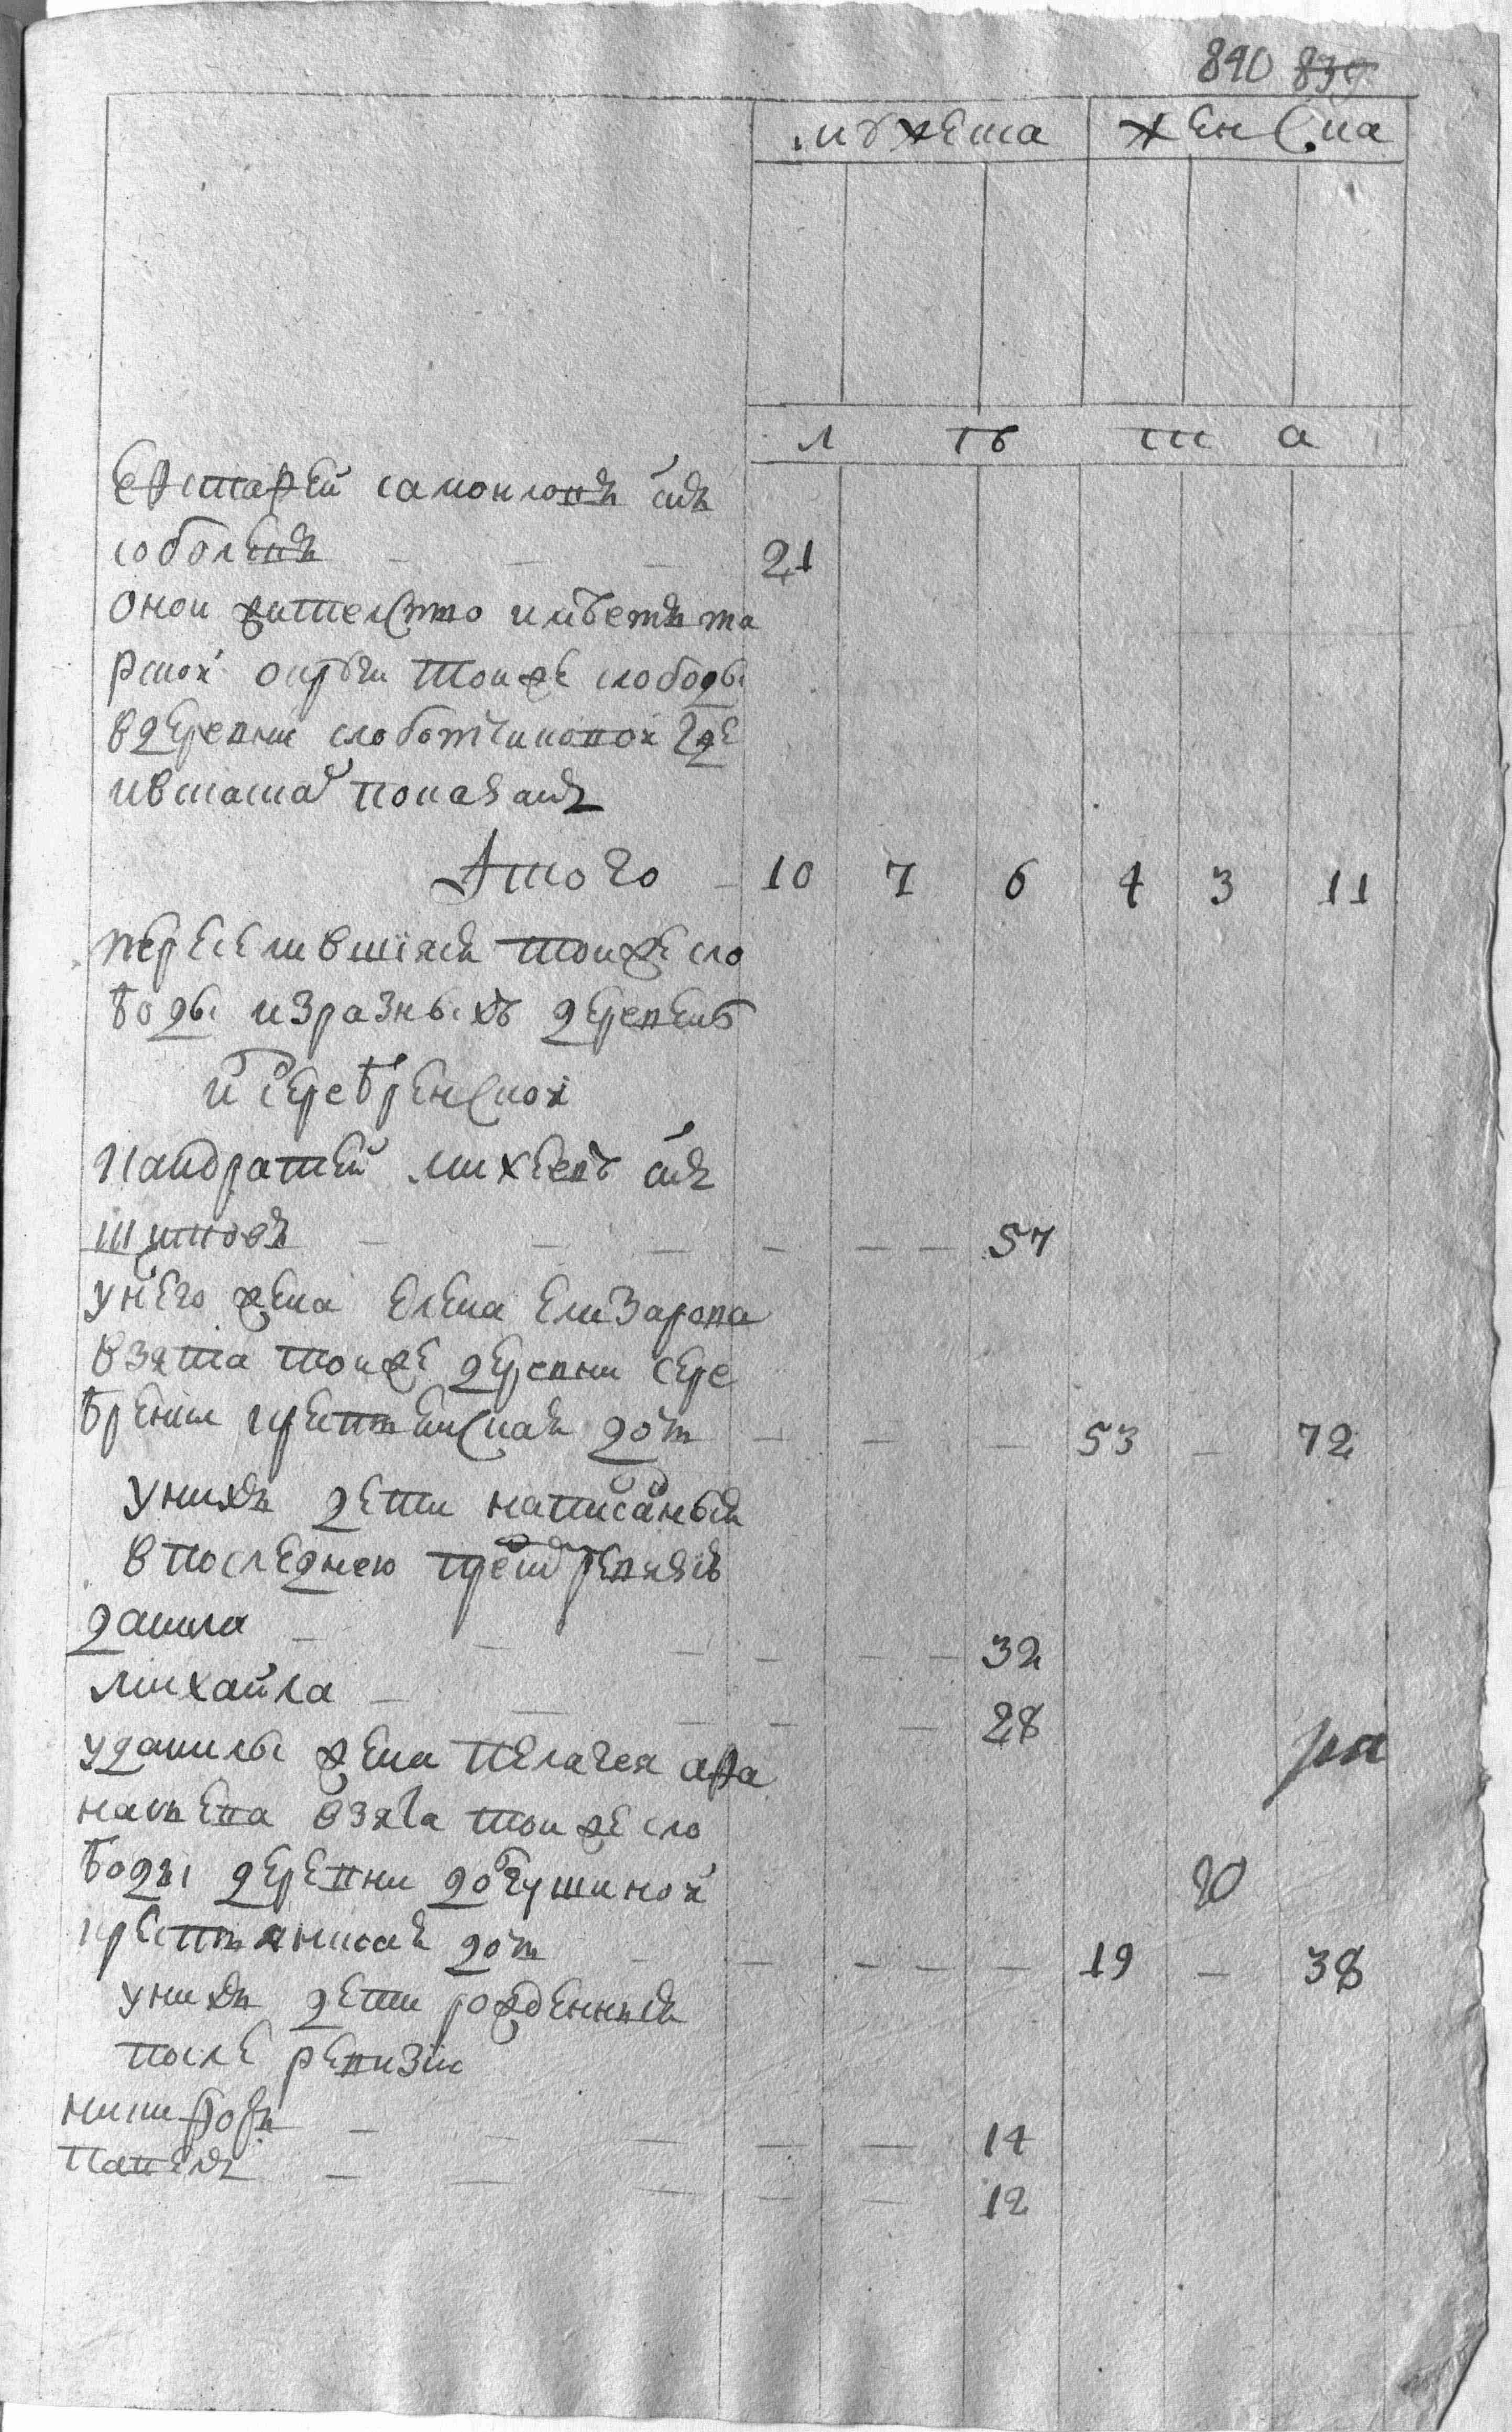 840 839
мужеска женска
лѣта
Евстафей самойловъ снъ
соболевъ 21
Оной жителство имѣетъ та
рской округи тоиже слободы
вдеревни слоботчиковой где
ивскаскѣ показанъ
Итого 10 7 6 4 3 11
переселившiяся тоиже сло
боды изразныхъ деревень
из серебренской
Кандратей михеевъ снъ
щутовъ 57
Унего жена елена елизарова
взята тоиже деревни сере
бренки крестьянская дочь 53 72
Унихъ дети написаныя
впоследнею пред ревизiю
данила 32
михайла 28
уданилы жена пелагея афа
насьева взята тоиже сло
боды деревни
20
крестьянская дочь 19 38
унихъ дети рожденныя
после ревизiи
никифоръ 14
павелъ 12